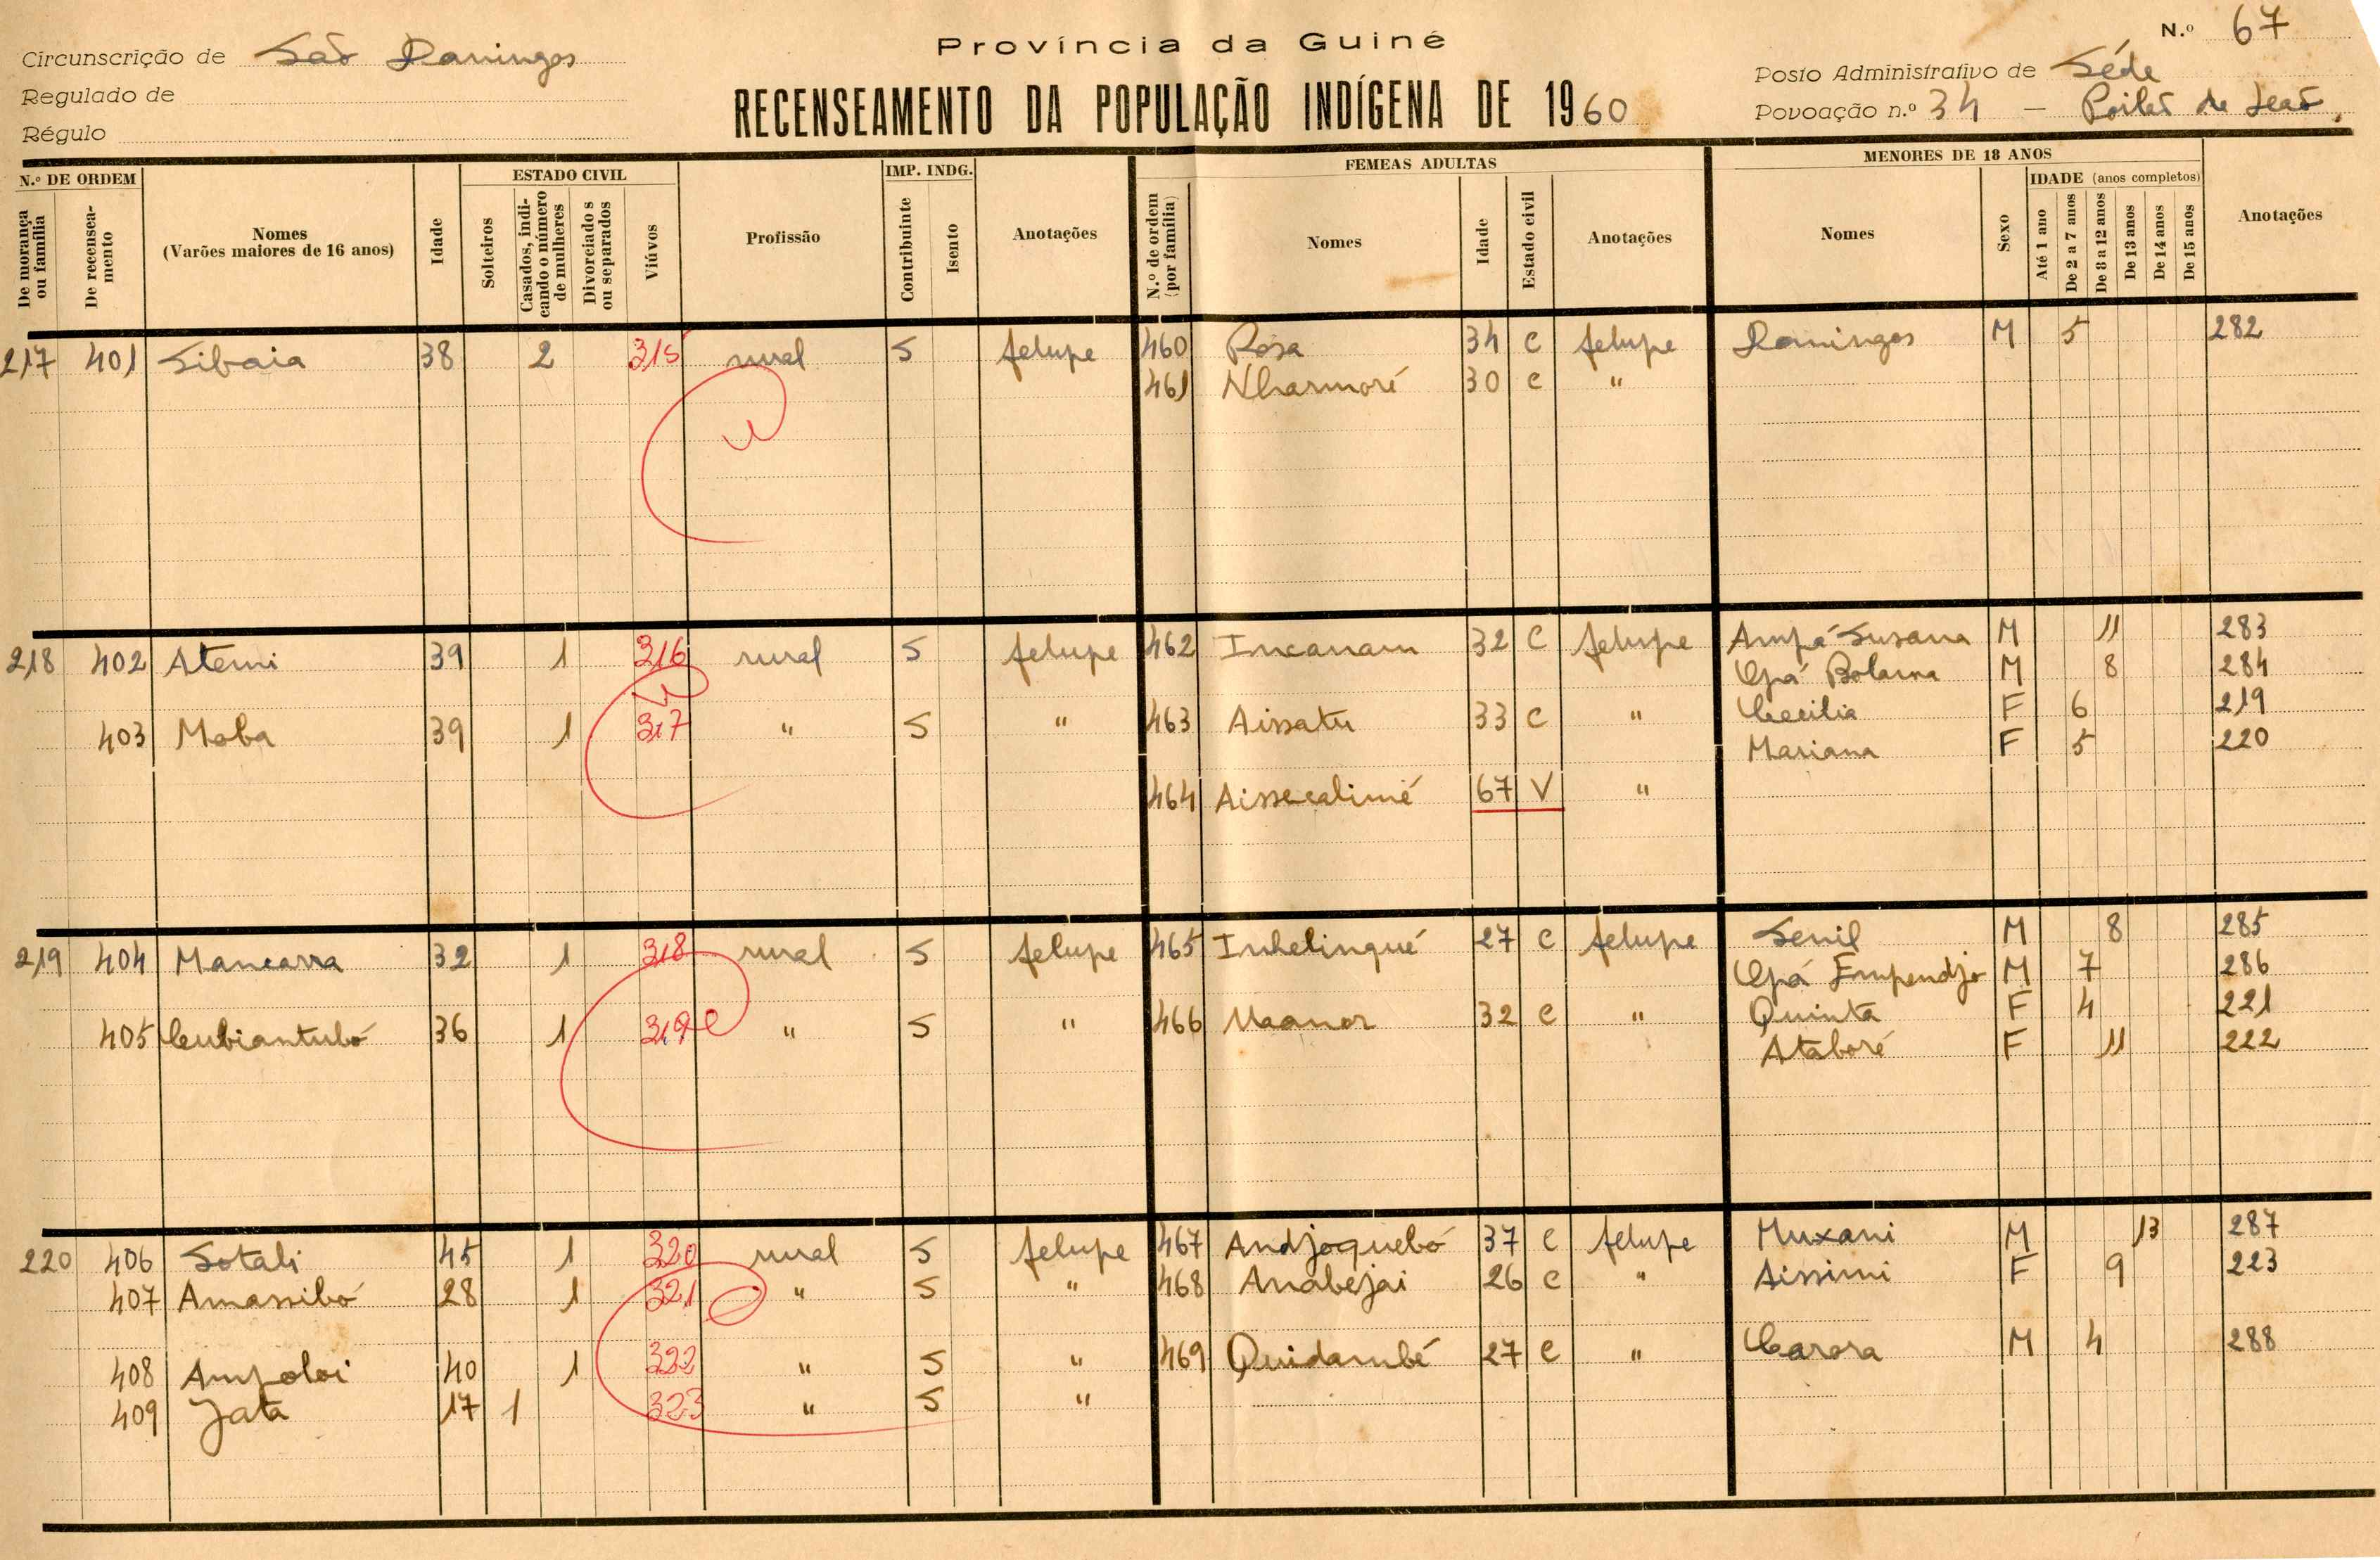 Província da Guiné
N.º 67
Circunscrição de São Domingos
Regulado de
Régulo
RECENSEAMENTO DA POPULAÇÃO INDÍGENA DE 1960
Posto Administrativo de Séde
Povoação n.º 34 — Poilão de Leão
N.º DE ORDEM
De morança ou família
De recenseamento
Nomes
(Varões maiores de 16 anos)
Idade
ESTADO CIVIL
Solteiros
Casados, indicando o número de mulheres
Divorciados ou separados
Viúvos
Profissão
IMP. INDG.
Contribuinte
Isento
Anotações
FEMEAS ADULTAS
N.º de ordem (por família)
Nomes
Idade
Estado civil
Anotações
MENORES DE 18 ANOS
Nomes
Sexo
IDADE (anos completos)
Até 1 ano
De 2 a 7 anos
De 8 a 12 anos
De 13 anos
De 14 anos
De 15 anos
Anotações
217 401 Sibaia 38 2 315 rural S felupe 460 Rosa 34 C felupe Domingos M 5 282
461 Nharmoré 30 C "
218 402 Atemi 39 1 316 rural S felupe 462 Incanam 32 C felupe Ampá Susana M 11 283
Opá Bolama M 8 284
403 Moba 39 1 317 " S " 463 Aissatu 33 C " Cecilia F 6 219
Mariana F 5 220
464 Aissecalimé 67 V "
219 404 Mancarra 32 1 318 rural S felupe 465 Inhelinqué 27 C felupe Senil M 8 285
Opá Empendjo M 7 286
405 Cubiantubó 36 1 319 " S " 466 Maanor 32 C " Quinta F 4 221
Ataboré F 11 222
220 406 Sotali 45 1 320 rural S felupe 467 Andjoquebó 37 C felupe Muxani M 13 287
407 Amassibó 28 1 321 " S " 468 Anabejai 26 C " Aissimi F 9 223
408 Ampoloi 40 1 322 " S " 469 Quidambé 27 C " Carora M 4 288
409 Jata 17 1 323 " S "